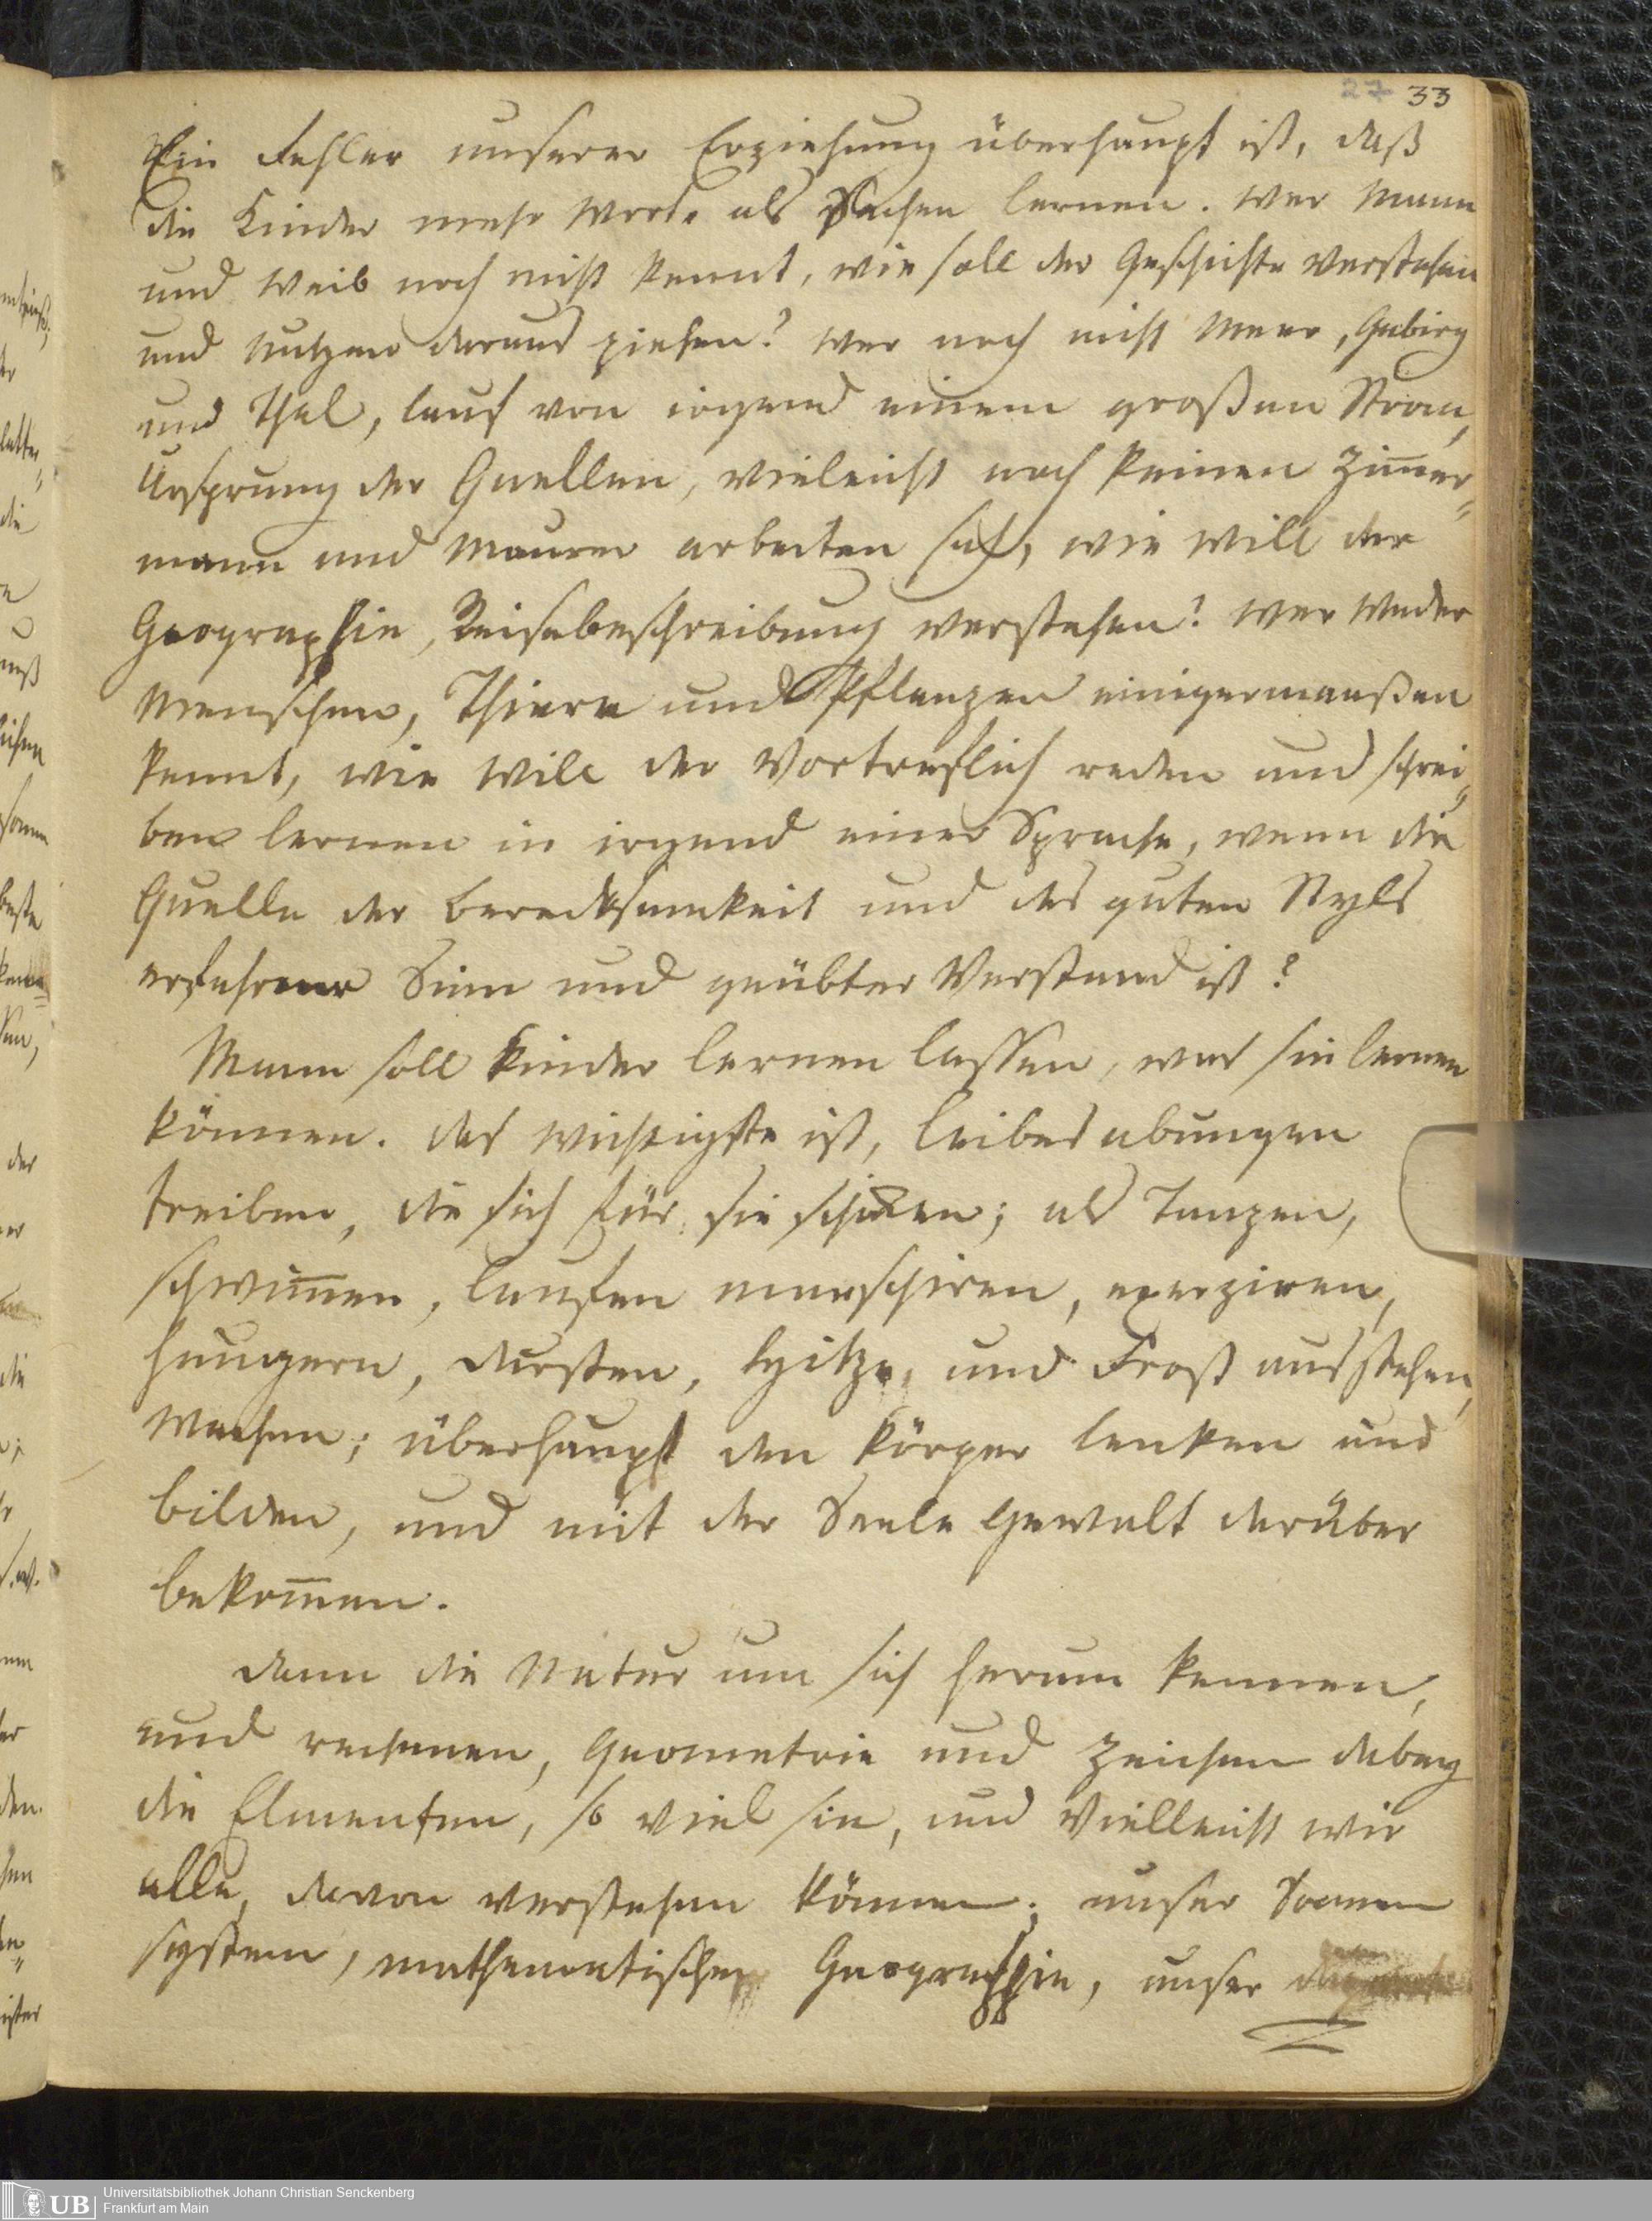 27 33
Ein Fehler unserer Erziehung überhaupt ist, daß
die Kinder mehr Worte als Sachen lernen. Wer Mann
und Weib noch nicht kennt, wie soll der Geschichte verstehen
und Nutzen daraus ziehen? Wer noch nicht Meer, Gebirg
und Thal, lauf von irgend einem großen Strom,
Ursprung der Quellen, vieleicht noch keinen Zim̅er=
mann und Maurer arbeiten sah, wie will der
Geographie, Reisebeschreibung verstehen? Wer weder
Menschen, Thiere und Pflanzen einigermaaßen
kennt, wie will der Vortreflich reden und schrei=
ben lernen in irgend einer Sprache, wenn die
Quelle der beredtsamkeit und des guten Styls
erfahrner Sinn und geübter Verstand ist?
Mann soll Kinder lernen lassen, was sie lernen
können. das wichtigste ist, leibesubungen
treiben, die sich für sie schicken; als Tanzen,
schwim̅en, laufen marschiren, exerziren,
hungern, dursten, Hitze, und Frost ausstehen,
wachen; überhaupt den Körper lenken und
bilden, und mit der Seele Gewalt darüber
bekom̅en.
dann die Natur um sich herum kennen,
und rechnen, Geometrie und Zeichen dabey
die Elmenten, so viel sie, und Vielleicht wir
alle, davon verstehen können; unser Sonnen
system, mathematische Geographie, unser
Universitätsbibliothek Johann Christian Senckenberg
Frankfurt am Main
UB